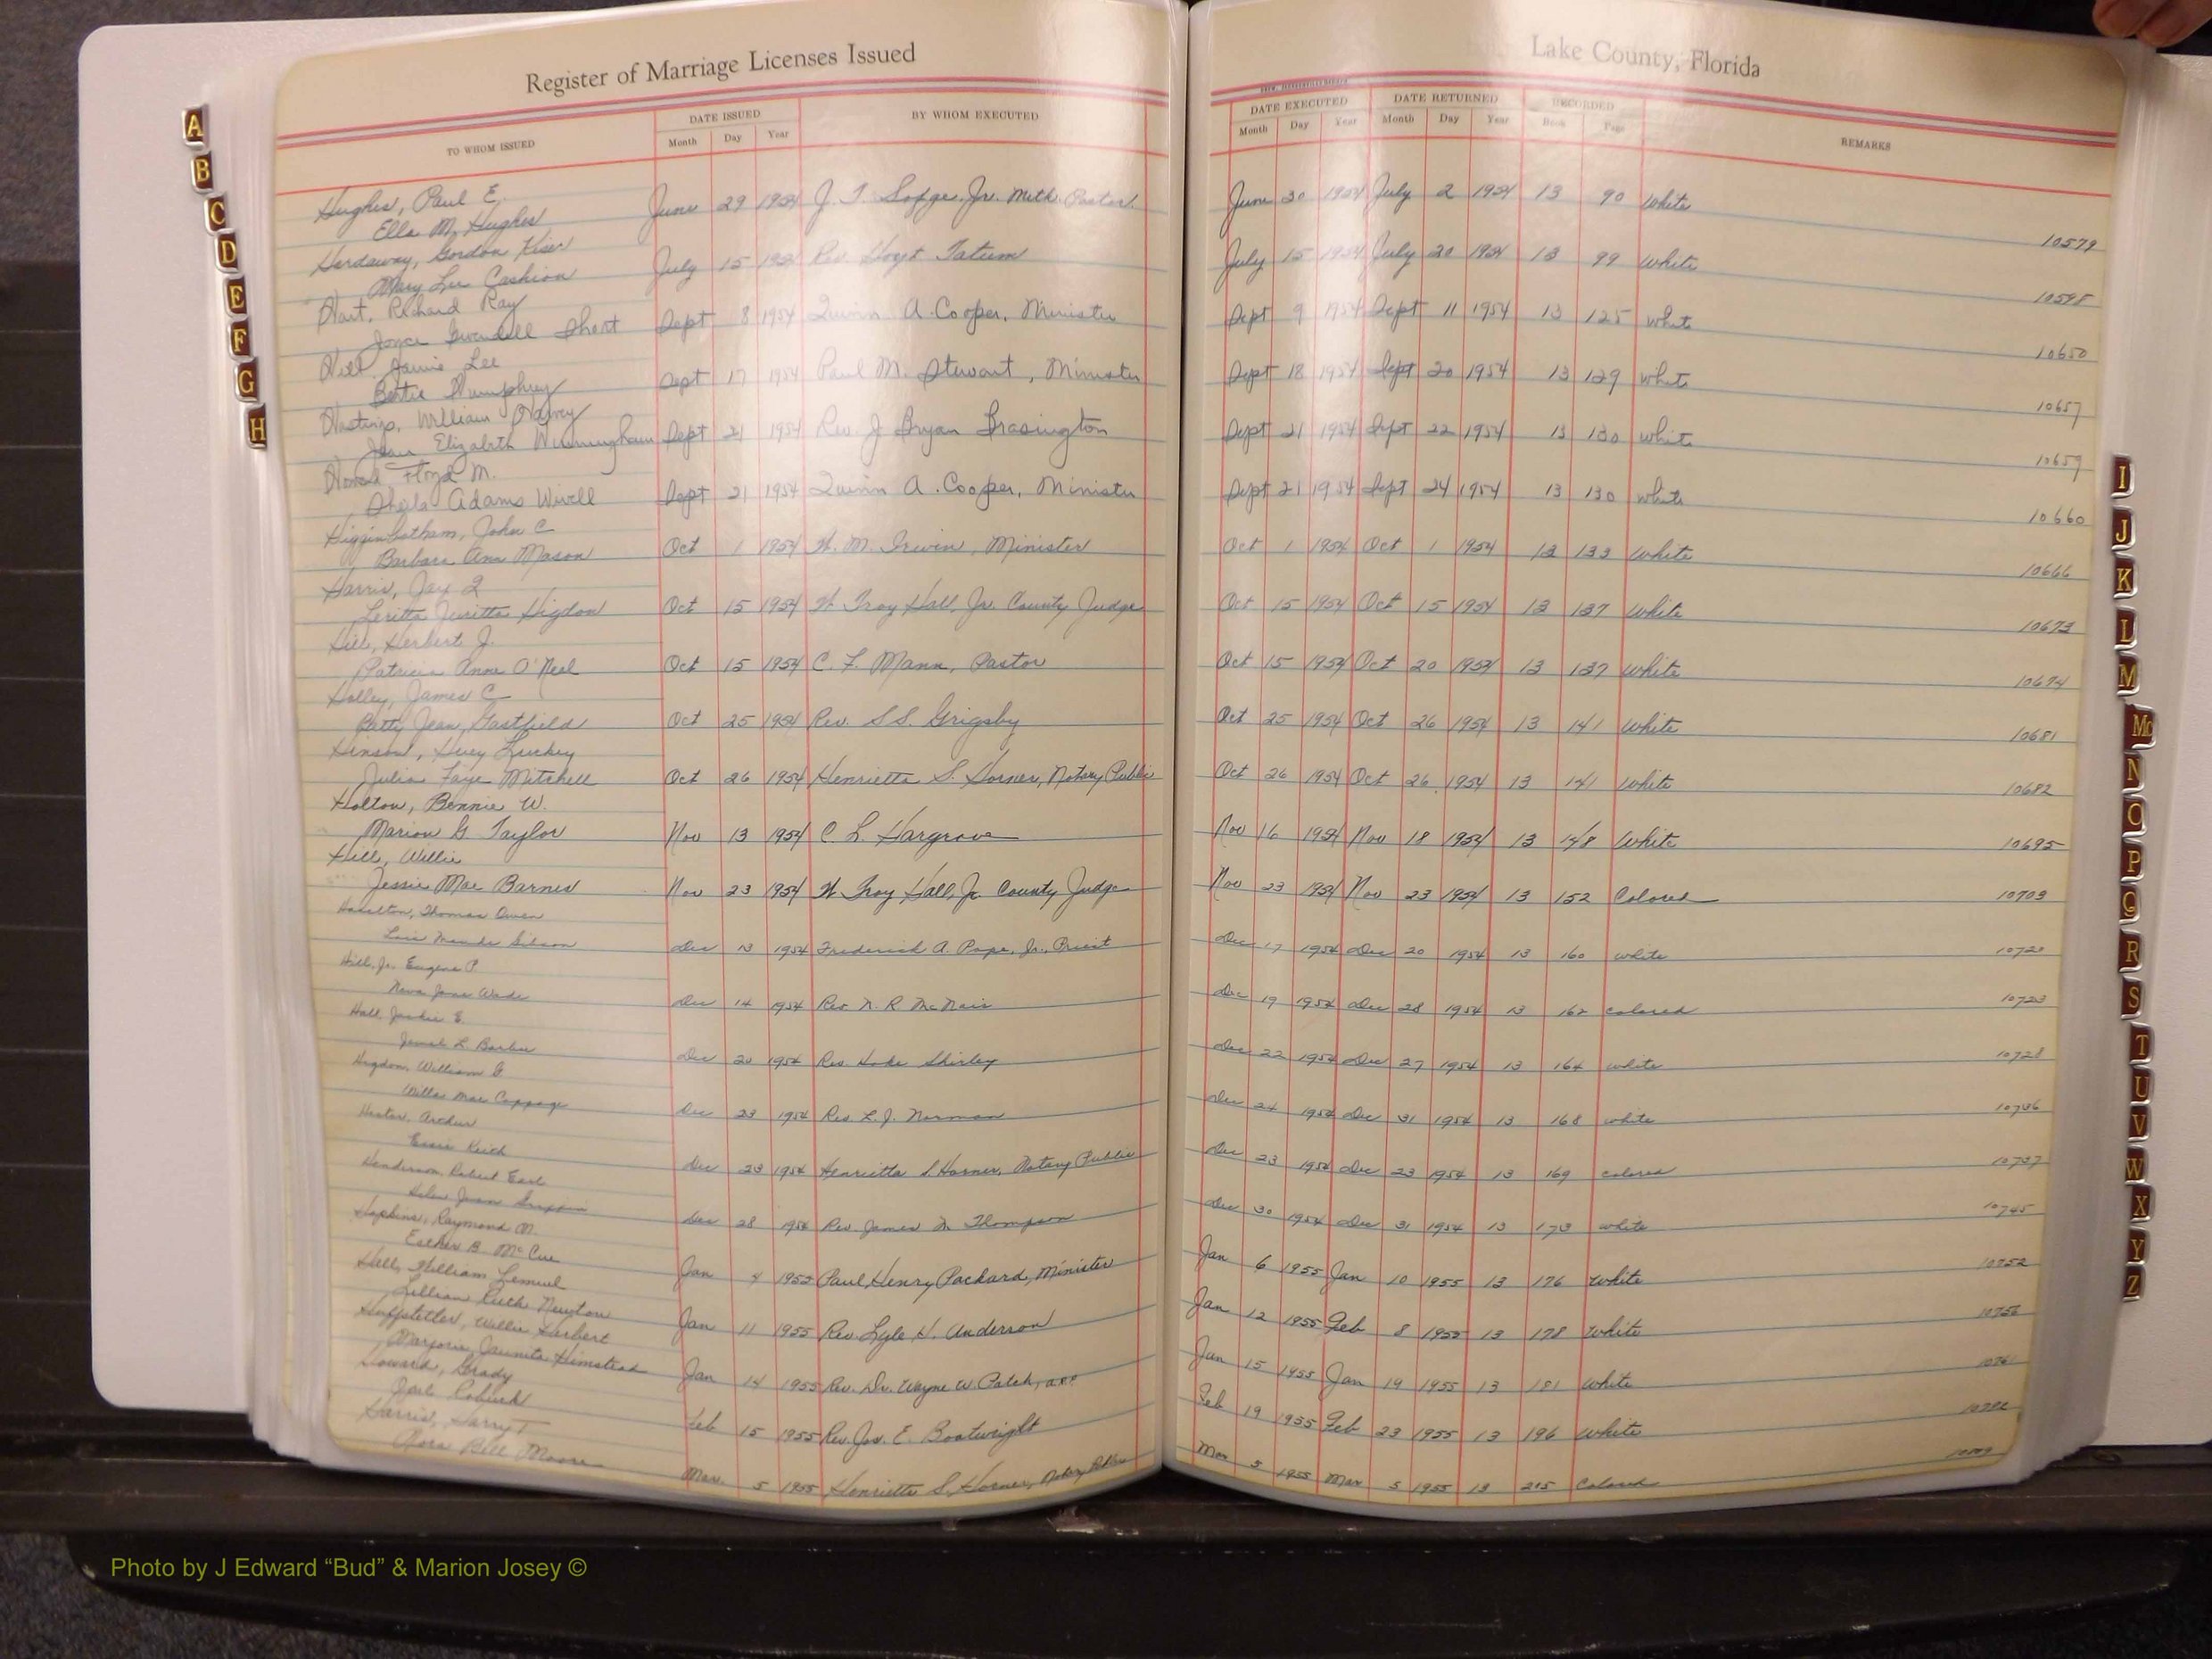 Register of Marriage Licenses Issued
Lake County, Florida
TO WHOM ISSUED
DATE ISSUED
Month Day Year
BY WHOM EXECUTED
DATE EXECUTED
Month Day Year
DATE RETURNED
Month Day Year
RECORDED
Book Page
REMARKS
Hughes, Paul E.
Ella M. Hughes June 29 1954 J. T. Meth. Pastor June 30 1954 July 2 1954 13 90 White 10579
Hardaway, Gordon Kiser
Mary Lee Cashion July 15 1954 Rev. Hoyt Tatum July 15 1954 July 20 1954 13 99 White 10598
Hart, Richard Ray
Joyce Short Sept 8 1954 Quinn A. Cooper, Minister Sept 9 1954 Sept 11 1954 13 125 White 10650
Lee
Bettie Humphrey Sept 17 1954 Paul M. Stewart, Minister Sept 18 1954 Sept 20 1954 13 129 White 10657
Hastings, William Harvey
Jean Elizabeth Winningham Sept 21 1954 Rev. J Bryan Brasington Sept 21 1954 Sept 22 1954 13 130 White 10659
Floyd M.
Sheila Adams Sept 21 1954 Quinn A. Cooper, Minister Sept 21 1954 Sept 24 1954 13 130 White 10660
Higginbotham, John C
Barbara Ann Mason Oct 1 1954 H. M. Irwin, Minister Oct 1 1954 Oct 1 1954 13 133 White 10666
Harris, Jay
Higdon Oct 15 1954 W Troy Hall, Jr. County Judge Oct 15 1954 Oct 15 1954 13 137 White 10673
Hill, Herbert J.
Patricia Anne O'Neal Oct 15 1954 C. F. Mann, Pastor Oct 15 1954 Oct 20 1954 13 137 White 10674
Holley, James C
Betty Jean Gastfield Oct 25 1954 Rev. S S. Grigsby Oct 25 1954 Oct 26 1954 13 141 White 10681
Huey
Julia Faye Mitchell Oct 26 1954 Henrietta S. Horner, Notary Public Oct 26 1954 Oct 26 1954 13 141 White 10682
Holton, Bennie W.
Marion G. Taylor Nov 13 1954 C. L. Hargrove Nov 16 1954 Nov 18 1954 13 148 White 10695
Hill, Willie
Jessie Mae Barnes Nov 23 1954 W Troy Hall, Jr. County Judge Nov 23 1954 Nov 23 1954 13 152 Colored 10703
Thomas Owen
Lois Gibson Dec 13 1954 Frederick A. Pope, Jr., Priest Dec 17 1954 Dec 20 1954 13 160 white 10720
Hill, Jr. Eugene P.
Wade Dec 14 1954 Rev N. R. McNair Dec 19 1954 Dec 28 1954 13 162 colored 10723
Hall, Jackie E.
L. Barber Dec 20 1954 Rev. Hoke Shirley Dec 22 1954 Dec 27 1954 13 164 white 10728
Higdon, William
Willa Mae Dec 23 1954 Rev L. J. Norman Dec 24 1954 Dec 31 1954 13 168 white 10736
Hester, Arthur
Essie Keith Dec 23 1954 Henrietta S. Horner, Notary Public Dec 23 1954 Dec 23 1954 13 169 colored 10737
Henderson, Robert Earl
Helen Dec 28 1954 Rev. James Thompson Dec 30 1954 Dec 31 1954 13 173 white 10745
Hopkins, Raymond M.
Esther B. McCue Jan 4 1955 Paul Henry Packard, Minister Jan 6 1955 Jan 10 1955 13 176 White 10752
Hall, William Lemuel
Lillian Ruth Newton Jan 11 1955 Rev. Lyle H. Anderson Jan 12 1955 Feb 8 1955 13 178 White
Huffstetler, Willie Herbert
Marjorie Jaunita Himstead Jan 14 1955 Rev. Dr. Wayne W. Jan 15 1955 Jan 19 1955 13 181 White
Howard, Grady
Opal Feb 15 1955 Rev. Jos. E. Boatwright Feb 19 1955 Feb 23 1955 13 196 White
Harris, Harry T
Bell Moore Mar. 5 1955 Henrietta S. Horner, Notary Public Mar 5 1955 Mar 5 1955 13 205 Colored
A
B
C
D
E
F
G
H
I
J
K
L
M
Mc
N
O
P
Q
R
S
T
U
V
W
X
Y
Z
Photo by J Edward “Bud” & Marion Josey ©